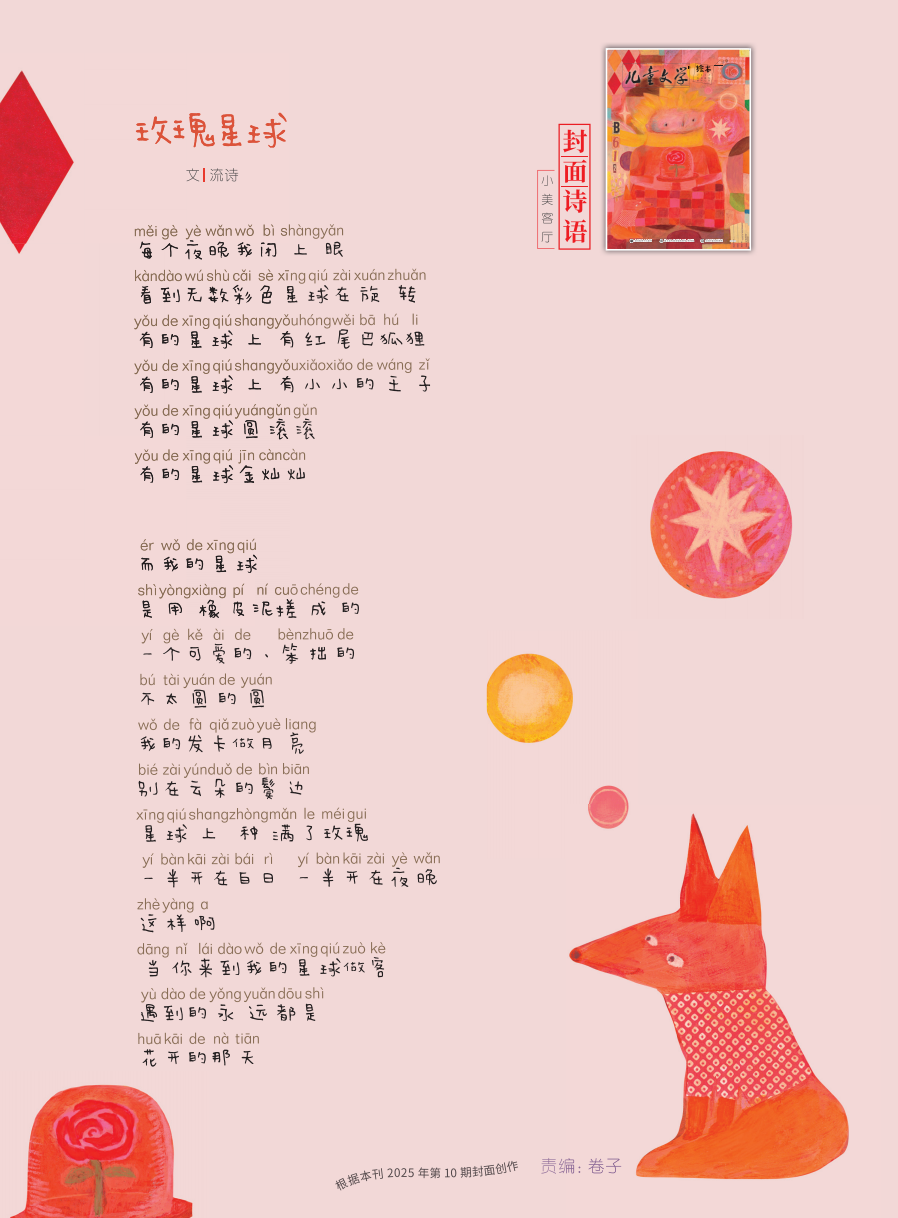 玫瑰星球
文|流诗
封面诗语
小美客厅
儿童文学
绘本
měi gè yè wǎn wǒ bì shàng yǎn
每个夜晚我闭上眼
kàn dào wú shù cǎi sè xīng qiú zài xuán zhuǎn
看到无数彩色星球在旋转
yǒu de xīng qiú shang yǒu hóng wěi bā hú li
有的星球上有红尾巴狐狸
yǒu de xīng qiú shang yǒu xiǎo xiǎo de wáng zǐ
有的星球上有小小的王子
yǒu de xīng qiú yuán gǔn gǔn
有的星球圆滚滚
yǒu de xīng qiú jīn càn càn
有的星球金灿灿
ér wǒ de xīng qiú
而我的星球
shì yòng xiàng pí ní cuō chéng de
是用橡皮泥搓成的
yí gè kě ài de bèn zhuō de
一个可爱的、笨拙的
bú tài yuán de yuán
不太圆的圆
wǒ de fà qiǎ zuò yuè liang
我的发卡做月亮
bié zài yún duǒ de bìn biān
别在云朵的鬓边
xīng qiú shang zhòng mǎn le méi gui
星球上种满了玫瑰
yí bàn kāi zài bái rì yí bàn kāi zài yè wǎn
一半开在白日 一半开在夜晚
zhè yàng a
这样啊
dāng nǐ lái dào wǒ de xīng qiú zuò kè
当你来到我的星球做客
yù dào de yǒng yuǎn dōu shì
遇到的永远都是
huā kāi de nà tiān
花开的那天
根据本刊 2025 年第 10 期封面创作
责编：卷子